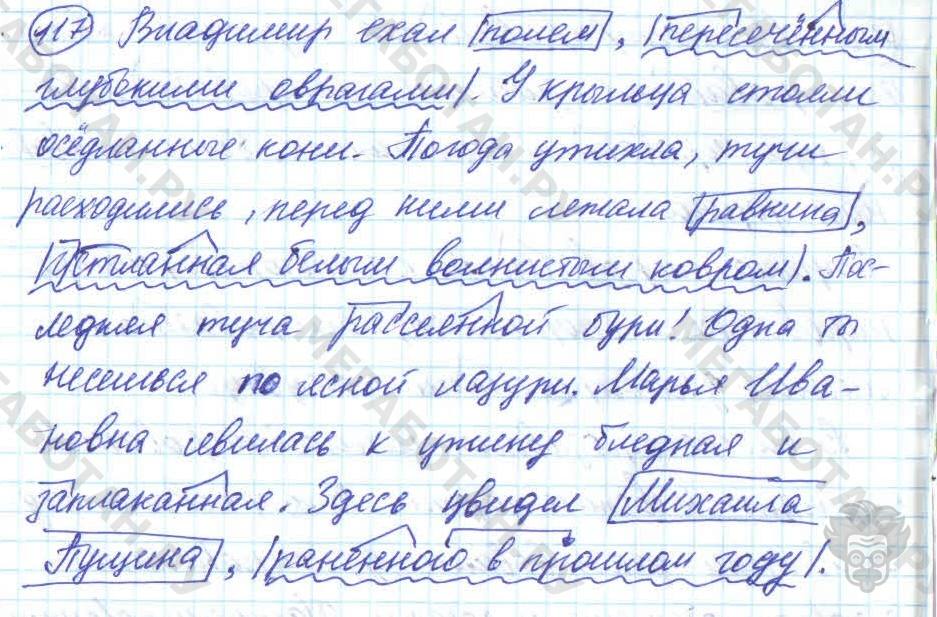 117) Владимир ехал |полем|, |пересечённым
глубокими оврагами|. У крыльца стояли
осёдланные кони. Погода утихла, тучи
расходились, перед ними лежала |равнина|,
|устланная белым волнистым ковром|. Пос-
ледняя туча рассеянной бури! Одна ты
несешься по ясной лазури. Марья Ива-
новна явилась к ужину бледная и
заплаканная. Здесь увидел |Михаила
Пущина|, |раненного в прошлом году|.
МЕГАБОТАН.РУ